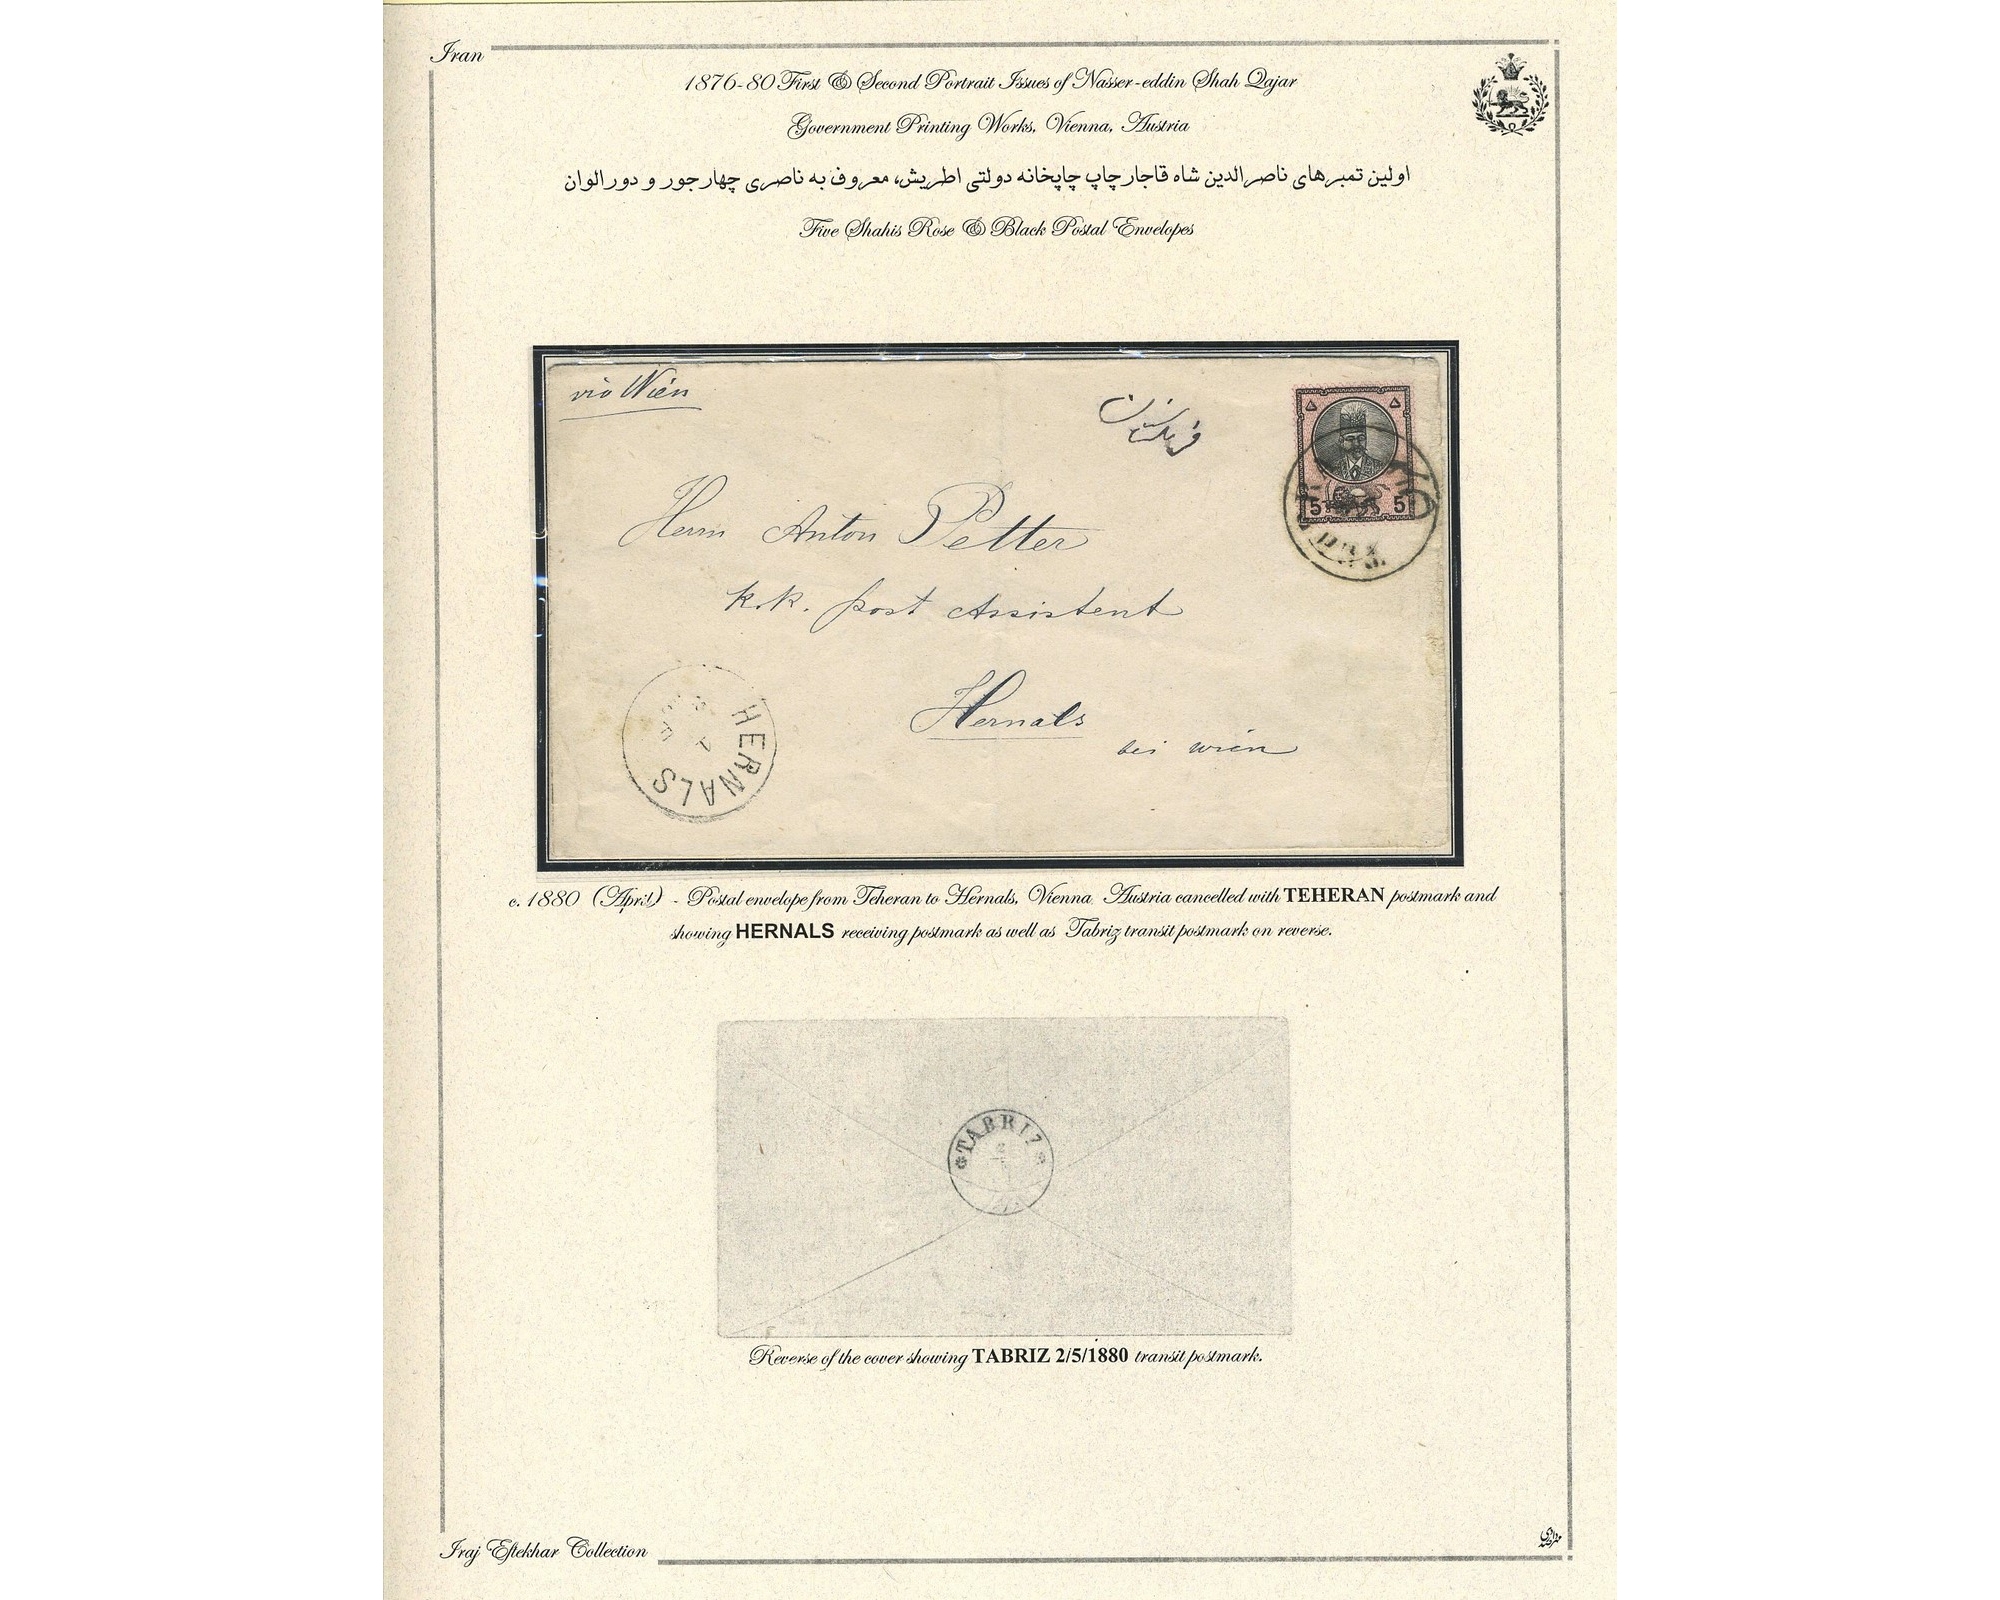 Iran
1876-80 First & Second Portrait Issues of Nasser-eddin Shah Qajar
Government Printing Works, Vienna, Austria
اولین تمبرهای ناصرالدین شاه قاجار چاپ چاپخانه دولتی اطریش، معروف به ناصری چهار جور و دور الوان
Five Shahis Rose & Black Postal Envelopes
via Wien
فرنگستان
۵ ۵
5 5
Herrn Anton Petter
k.k. post Assistent
Hernals
bei wien
HERNALS
c. 1880 (April) - Postal envelope from Teheran to Hernals, Vienna Austria cancelled with TEHERAN postmark and
showing HERNALS receiving postmark as well as Tabriz transit postmark on reverse.
TABRIZ
Reverse of the cover showing TABRIZ 2/5/1880 transit postmark.
Iraj Eftekhar Collection